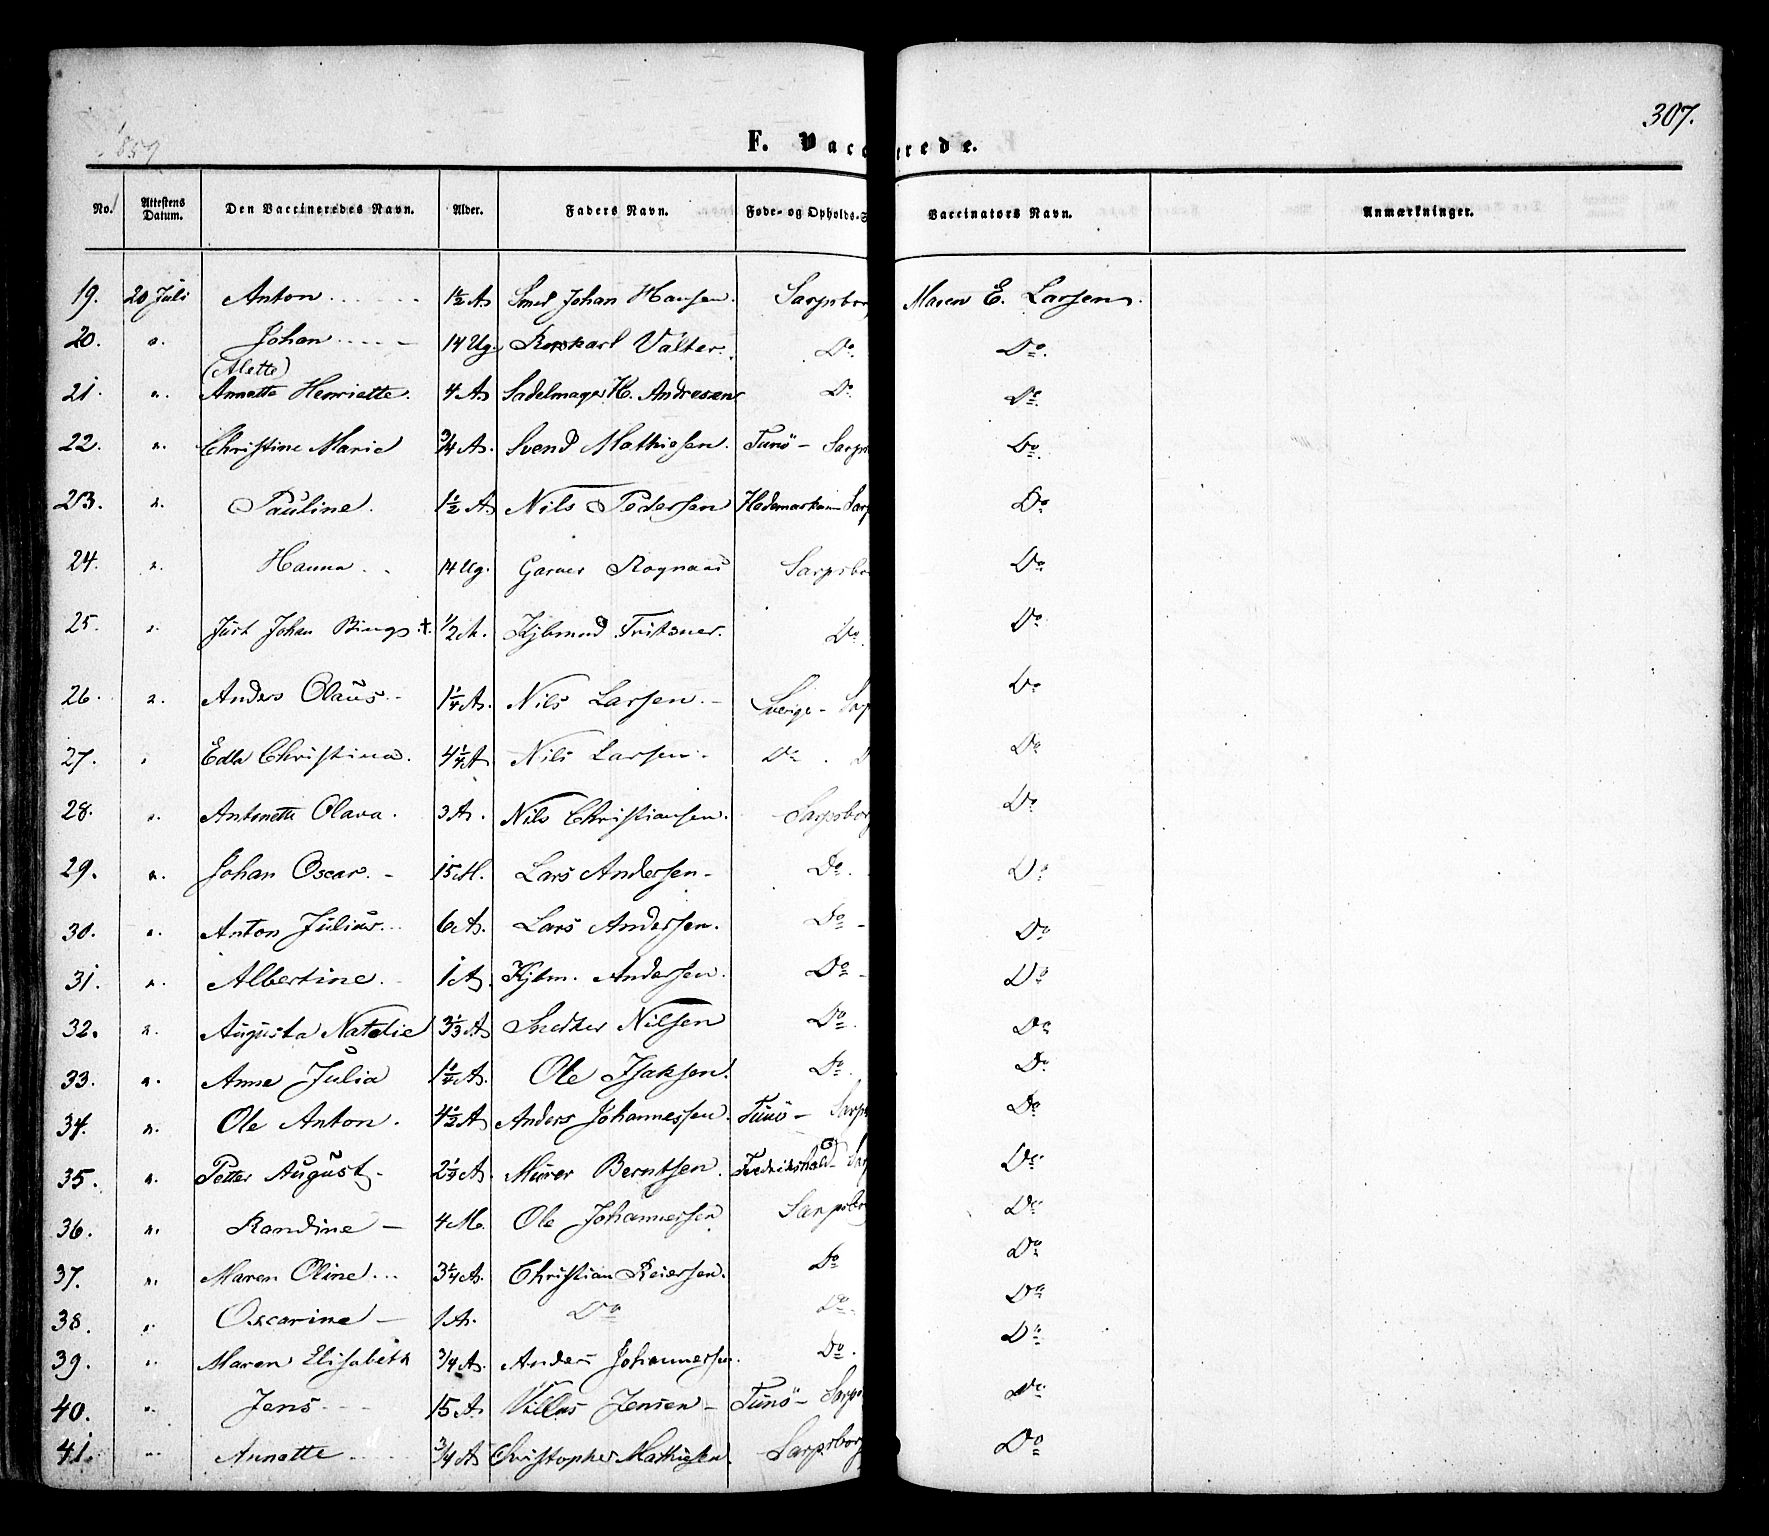 307.
1859
F. Vacc rede.
No. Attestens Datum. Den Vaccineredes Navn. Alder. Faders Navn. Føde- og Opholds-S Vaccinators Navn. Anmærkninger.
19. 20 Juli Anton 1½ A. Smed Johan Hansen. Sarpsbor Maren E. Larsen.
20. " Johan 14 Ug. Valter. Do. Do.
(Alette)
21. " Annette Henriette. 4 A. Sadelmager H. Andresen Do. Do.
22. " Christine Marie ¾ A. Svend Mathiesen. Tunö - Sarps Do.
23. " Pauline. 1½ A. Nils Pedersen Hedemarken Sarp Do
24. " Hanna 14 Ug. Garver Rognaas Sarpsbor Do
25. " Just Johan Bings † ½ A. Kjbmnd Fritzner. Do. Do.
26. " Anders Olaus - 1¼ A. Nils Larsen. - Sverige - Sarp Do
27. " Edla Christina. 4¼ A Nils Larsen. Do . D Do
28. " Antonette Olava. 3 A. Nils Christiansen. Sarpsborg Do
29. " Johan Oscar. - 15 M. Lars Andersen - Do. Do
30. " Anton Julius 6 A. Lars Andersen. Do - Do
31. " Albertine. 1 A. Kjbm. Andersen. Do - Do
32. " Augusta Natalie 3⅓ A Snedker Nilsen Do. Do
33. " Anne Julia 1¼ A. Ole Isaksen. Do. Do
34. " Ole Anton. 4½ A Anders Johannessen. Tunö - Sarps Do
35. " Petter August 2½ A. Murer Berntsen. Fredrikshald - Sar Do
36. " Randine - 4 M. Ole Johannessen Sarpsbor Do
37. " Maren Oline 3¼ A. Christian Reiersen. Do Do
38. " Oscarine - 1 A. Do Do. Do
39. " Maren Elisabeth ¾ A. Anders Johannessen. Do. Do
40. " Jens 15 A. Jensen - Tunö - Sarps Do
41. " Annette ¾ A Christopher Mathisen. Sarpsborg Do